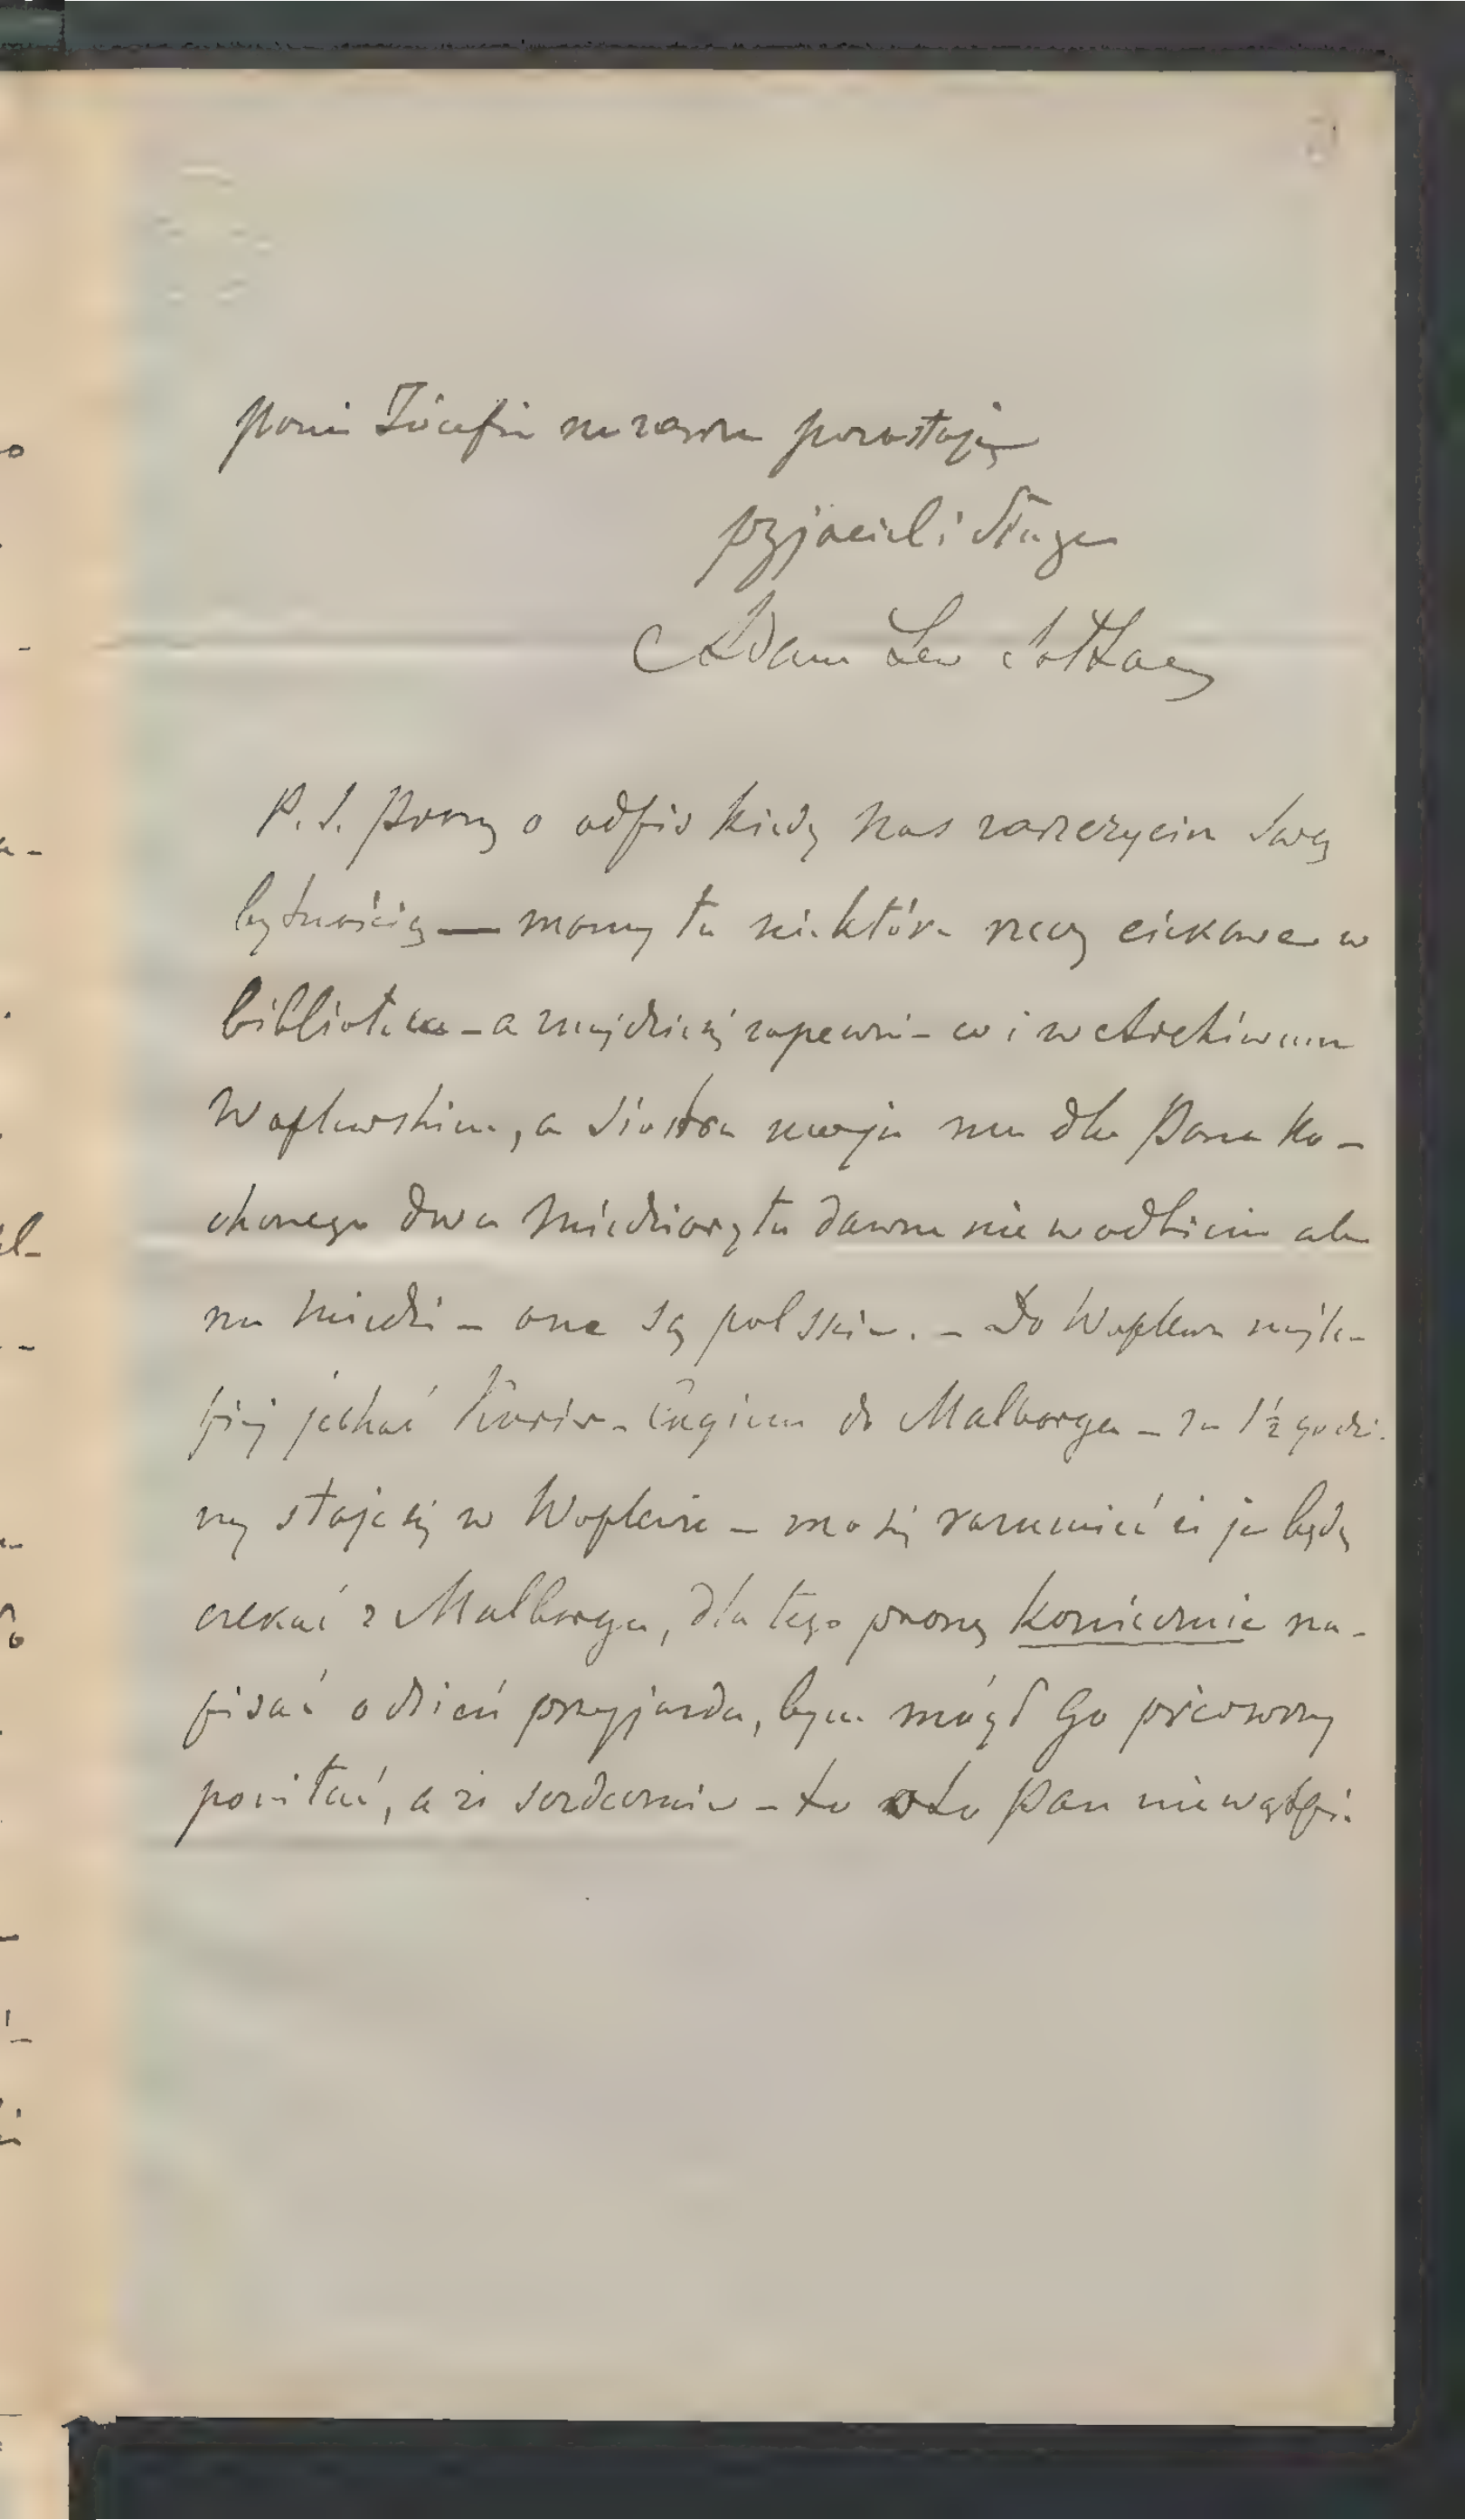 panie Józefie na zawsze pozostaję
przyjaciel i sługa
Adam Lew Sołtan
P. S. Proszę o odpis kiedy nas zaszczycisz swą
bytnością — mamy tu niektóre rzeczy ciekawe w
bibliotece – a znajdzie się zapewnie co i w Archiwum
Waplewskim, a siostra moja ma dla Pana ko-
chanego dwa miedzioryta dawne nie w odbiciu ale
na miedzi – one są polskie. – Do Waplewa najle-
piej jechać Kurier-Cugiem do Malborga – za 1½ godzi-
ny staje się w Waplewie – ma się rozumieć iż ja będę
czekać z Malborga, dla tego proszę koniecznie na-
pisać o dzień przyjazdu, bym mógł Go pierwszy
powitać, a że serdecznie – to o to Pan nie wątpi.